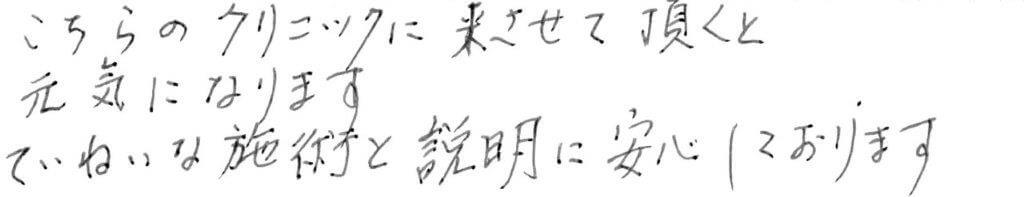 こちらのクリニックに来させて頂くと
元気になります
ていねいな施術と説明に安心しております